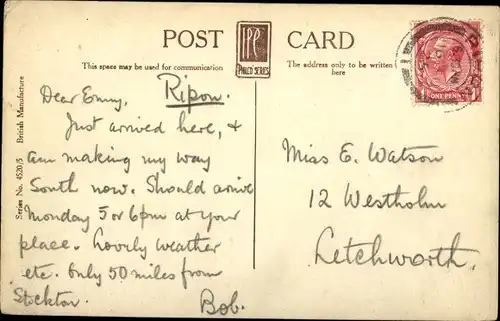 POST CARD
PPC
PHILCO SERIES
This space may be used for communication
The address only to be written
here
Series No. 4520/5 British Manufacture
Ripon.
Dear Emmy,
Just arrived here, &
am making my way
South now. Should arrive
Monday 5 or 6pm at your
place. Lovely weather
etc. Only 50 miles from
Stockton.
Bob.
ONE PENNY
Miss E. Watson
12 Westholm
Letchworth.